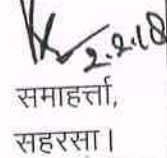 2.2.18
समाहर्त्ता,
सहरसा।